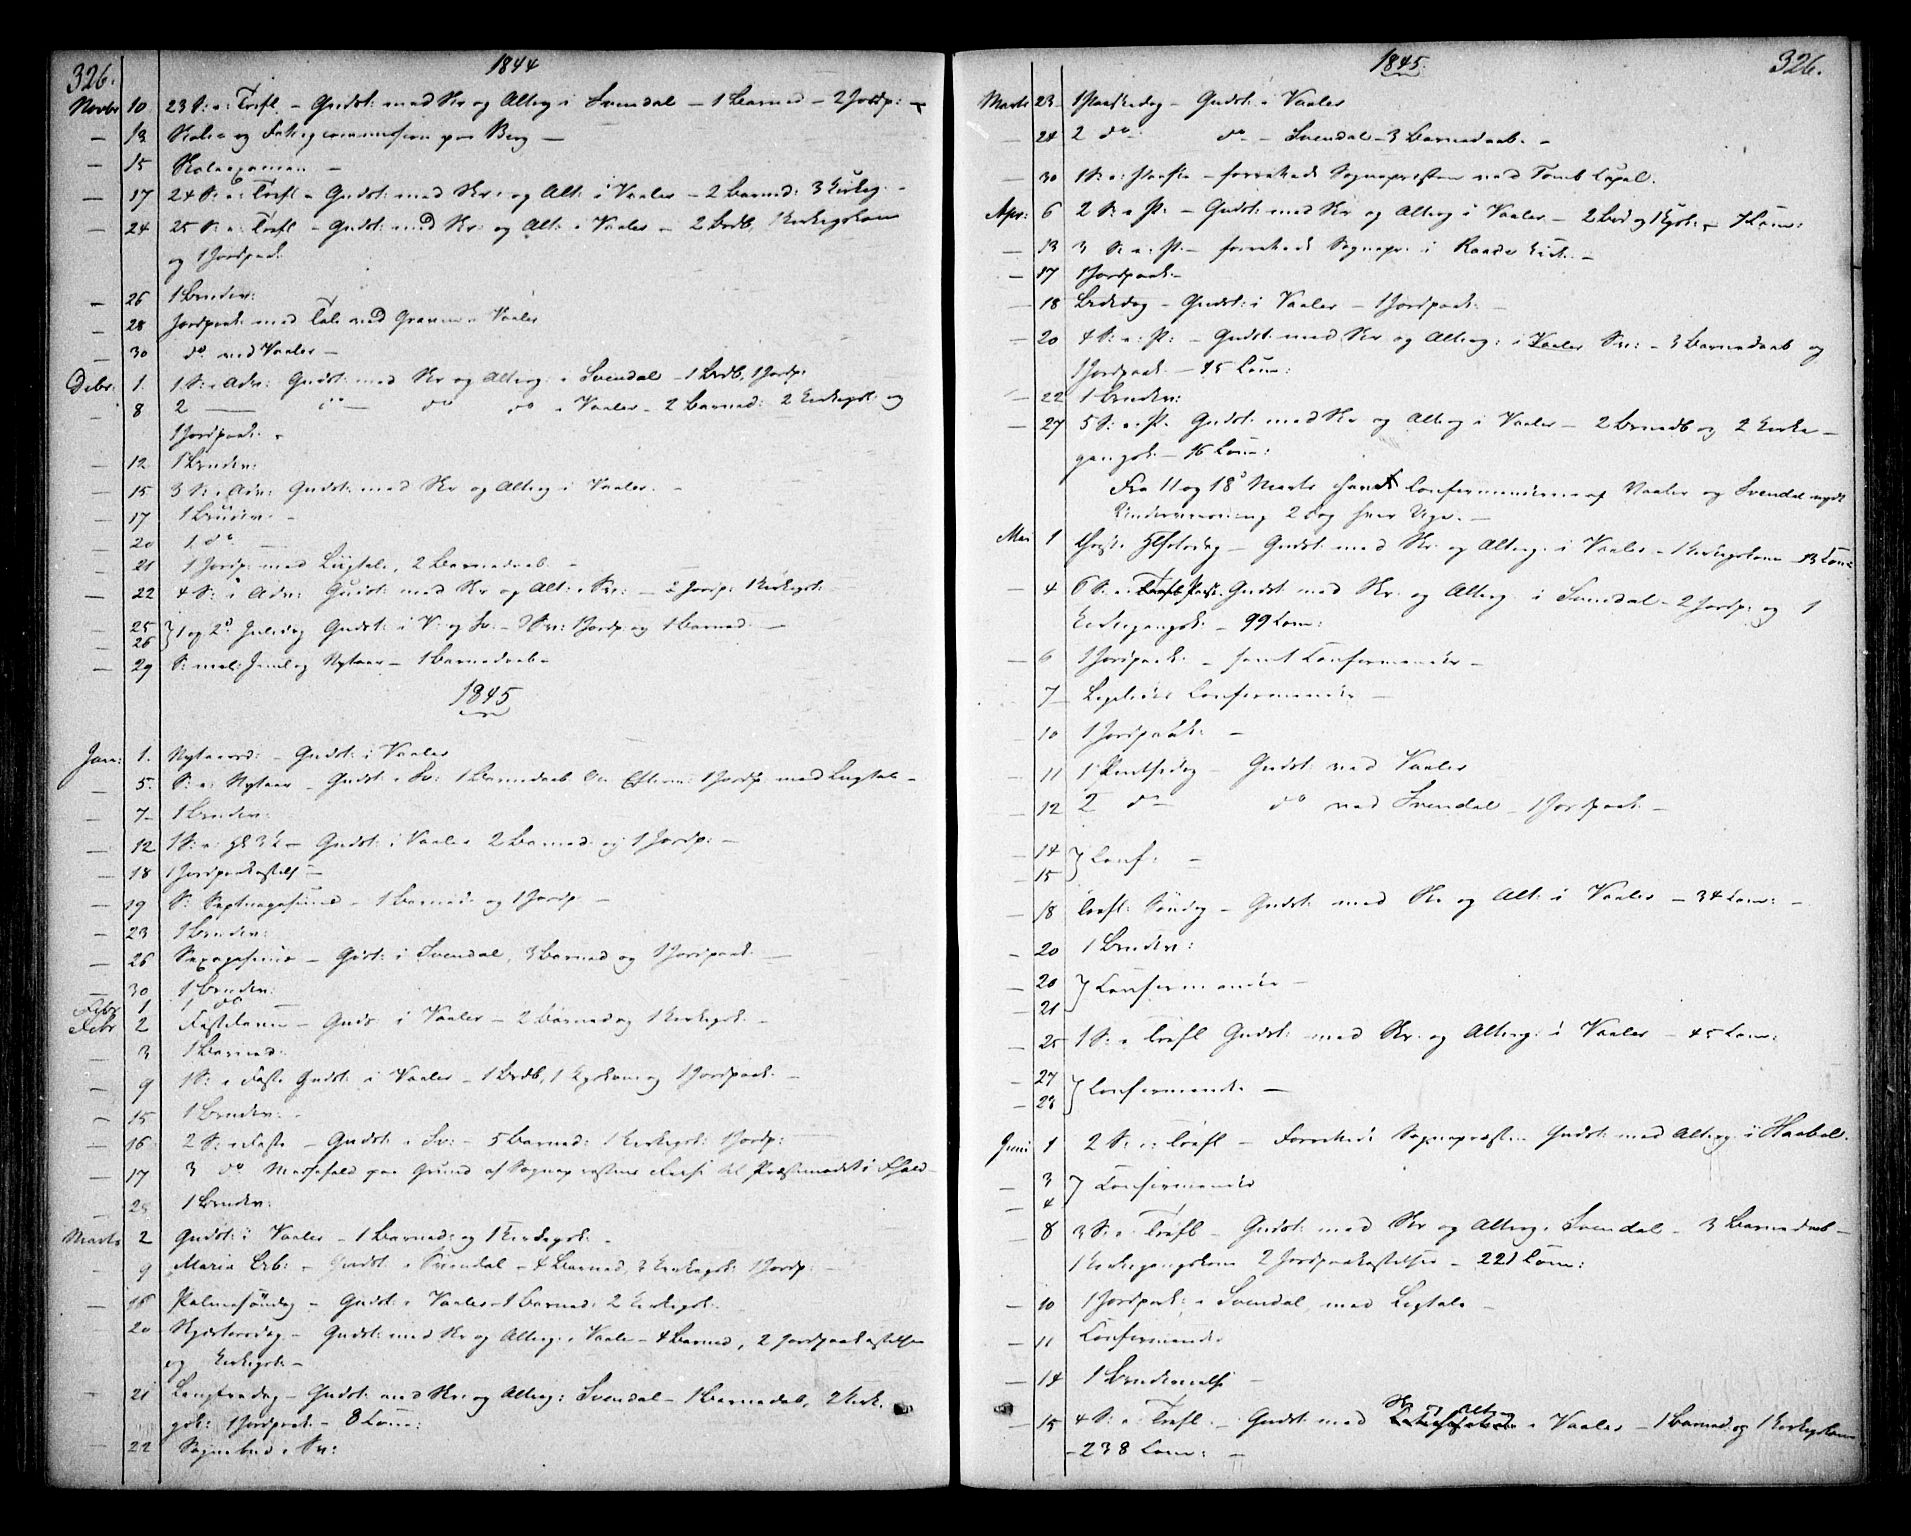 326.
1844
Novbr 10 23 S: e: Trefl – Gudst: med Skr og Alterg i Svendal – 1 Barned – 2 Jordp: –
– 13 Skole og Fattigcommission paa Berg –
– 15 Skoleexamen –
– 17 24 S: e: Trefl – Gudst: med Skr: og Alt: i Vaaler – 2 Barned: 3 Kirkeg: –
– 24 25 S: e: Trefl – Gudst: med Skr: og Alt: i Vaaler – 2 Brdb, 1 Kirkegskone
og 1 Jordpaak:
– 26 1 Brudev:
– 28 Jordpaak: med Tale ved Graven i Vaaler
– 30 do ved Vaaler –
Debr: 1. 1 S: i Adv: Gudst: med Skr og Alterg: i Svendal – 1 Brdb, 1 Jordp:
– 8 2 – do – do do i Vaaler – 2 Barned: 2 Kirkegsk: og
1 Jordpaak: –
– 12 1 Brudev:
– 15 3 S: i Adv: Gudst: med Skr og Alterg i Vaaler. –
– 17 1 Brudev: –
– 20 1 do –
– 21 1 Jordp: med Liigtale, 2 Barnedaab –
– 22 4 S: i Adv: Gudst: med Skr og Alt: i Sv: – 2 Jordp: 1 Kirkegsk:
– 25 26 } 1 og 2d Juledag Gudst: i V: og Sv: – 1 Jordp: og 1 Barned –
– 29 S: mel: Juul og Nytaar – 1 Barnedaab –
1845
Jan: 1. Nytaarsd: – Gudst: i Vaaler
– 5. S: e: Nytaar – Gudst i Sv: 1 Barnedaab 1 Jordp. med Liigtale –
– 7 – 1 Brudev:
– 12 1 S: e: H 3 K – Gudst: i Vaaler 2 Barned: og 1 Jordp: –
– 18 1 Jordpaakastelse –
– 19 S: Septuagesima – 1 Barned: og 1 Jordp –
– 23 1 Brudev:
– 26 Sexagesima – Gudst: i Svendal, 3 Barned og 1 Jordpaak: –
– 30 1 Brudev:
Febr 1 1 do –
Febr 2 Fastelavn – Guds i Vaaler – 2 Barned og 1 Kirkegsk: –
– 3 1 Barned:
– 9 1 S: i Faste Gudst: i Vaaler – 1 Brdb, 1 Kgskone og 1 Jordpaak: –
– 15 1 Brudev: –
– 16 2 S: i Faste – Gudst: i Sv: – 5 Barned: 1 Kirkegsk: 1 Jordp: –
– 17 3 do Messefald paa Grund af Sogneprestens Reise til Præstemødet i Fhald –
– 25 1 Brudev:
Marts 2 Gudst: i Vaaler – 1 Barned: og 1 Kirkegsk: –
– 9 Maria Beb: – Gudst: i Svendal – 4 Barned, 3 Kirkegsk: 1 Jordp: –
– 16 Palmesöndag – Gudst: i Vaaler – 1 Barned: 2 Kirkegsk:
– 20 Skjertorsdag – Gudst: med Skr og Alterg: i Vaaler – 4 Barned, 2 Jordpaakastelser
og Kirkegsk: –
– 21 Langfredag – Gudst: med Skr: og Alterg: Svendal – 1 Barnedab, 2 Kirk
gsk: 1 Jordpaak – 8 Com:
– 22 Sognebud i Sv:
1845
326.
Marts 23 1 Paaskedag – Gudst: i Vaaler
– 24 2 do do – Svendal – 3 Barnedaab. –
– 30 1 S: e: Paaske – forrettede Sognepresten ved Tomb Capel.
Apr: 6 2 S: e: P: – Gudst: med Skr og Alterg i Vaaler – 2 Brd og 1 Kgsk: – 7 Com:
– 13 3 S: e: P: – forrettede Sognepr: i Raade Kirk: –
– 17 1 Jordpaak –
– 18 Bededag – Gudst: i Vaaler – 1 Jordpaak: –
– 20 4 S: e: P: – Gudst: med Skr og Alterg: i Vaaler Sv: – 3 Barnedaab og
1 Jordpaak: – 45 Com:
– 22 1 Brudev:
– 27 5 S: e: P: Gudst: med Skr: og Alterg i Vaaler – 2 Brnedb og 2 Kirke –
gangsk: – 16 Com:
Fra 11 og 18d Marts have Confirmanderne af Vaaler og Svendal nydt
Underviisning 2 Dag hver Uge. –
Mai 1 Christi Hfartsdag – Gudst: med Skr og Alterg: i Vaaler – 1 Kirkegskone – 13 Com:
– 4 6 S: e: Paask: Gudst: med Skr: og Alterg: i Svendal – 2 Jordp: og 1
Kirkegangsk: – 99 Com:
– 6 1 Jordpaak: – samt Confirmander –
– 7 – Ligeledes Confirmander –
– 10 1 Jordpaak: –
– 11 1 Pintsedag – Gudst: ved Vaaler
– 12 2 do do ved Svendal – 1 Jordpaak: –
– 14 – 15 } Conf: –
– 18 Trefl: Söndag – Gudst: med Skr og Alt: i Vaaler – 34 Com: –
– 20 1 Brudev:
– 20 – 21 } Confirmander –
– 25 1 S: e: Trefl Gudst: med Skr: og Alterg: i Vaaler – 45 Com:
– 27 – 28 } Confirmande –
Juni 1 2 S: e: Trefl – Forrettede Sognepræsten Gudst: med Alterg: i Haabøl.
– 3 – 4 } Confirmander
– 8 3 S: e: Trefl – Gudst: med Skr og Alterg i Svendal – 3 Barnedaab –
1 Kirkegangskone 2 Jordpaakastelser – 221 Com:
– 10 1 Jordpaak: i Svendal, med Ligtale –
– 11 Confirmander
– 14 1 Brudevielse –
– 15 4 S: e: Trefl. – Gudst: med Skr og Alterg i Vaaler – 1 Barned: og 1 Kirkegskone
– 238 Com: –